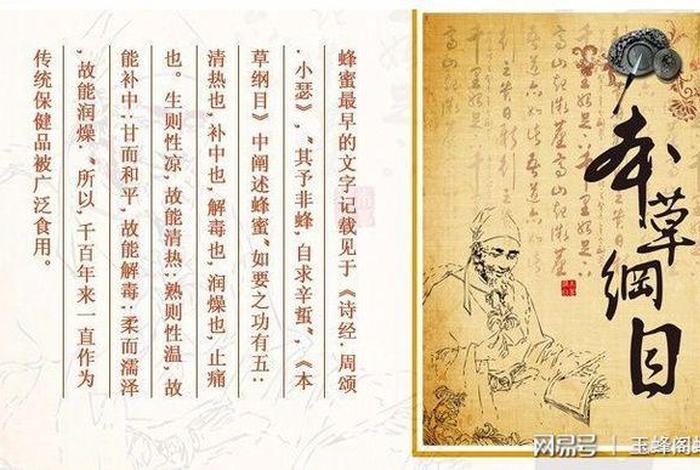 本草綱目
蜂蜜最早的文字记载见于《诗经.周颂
.小瑟》,"其予非蜂,自求辛蜇",《本
草纲目》中阐述蜂蜜"如要之功有五:
清热也,补中也,解毒也,润燥也,止痛
也。生则性凉,故能清热;熟则性温,故
能补中;甘而和平,故能解毒;柔而濡泽
,故能润燥."所以,千百年来一直作为
传统保健品被广泛食用。
网易号 | 玉蜂阁